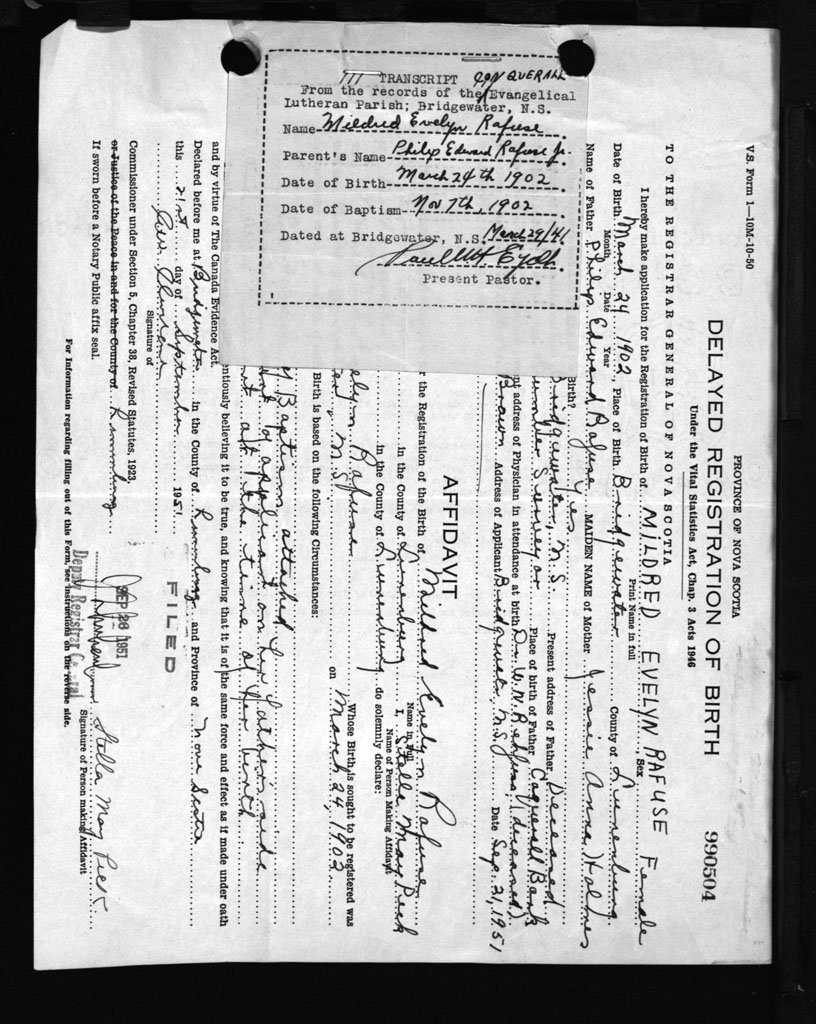 TRANSCRIPT CONQUERALL
From the records of the Evangelical
Lutheran Parish; Bridgewater, N.S.
Name Mildred Evelyn Rafuse
Parent's Name Philip Edward Rafuse Jr.
Date of Birth March 24th 1902
Date of Baptism Nov 7th, 1902
Dated at Bridgewater, N.S. March 29/41
Present Pastor.
V.S. Form 1—10M-10-50
PROVINCE OF NOVA SCOTIA
DELAYED REGISTRATION OF BIRTH 990504
Under the Vital Statistics Act, Chap. 3 Acts 1946
TO THE REGISTRAR GENERAL OF NOVA SCOTIA
I hereby make application for the Registration of Birth of MILDRED EVELYN RAFUSE, Sex Female
Print Name in full
Date of Birth March 24 1902, Place of Birth Bridgewater County of Lunenburg
Month Date Year
Name of Father Philip Edward Rafuse MAIDEN NAME of Mother Jessie Anna Holmes
Birth? Yes
Bridgewater, N.S. Present address of Father Deceased
Lumber Surveyor Place of birth of Father Conquerall Bank
nt address of Physician in attendance at birth Dr. W.N. (deceased)
Brown Address of Applicant Bridgewater, N.S. Date Sep. 21, 1951
AFFIDAVIT
r the Registration of the Birth of Mildred Evelyn Rafuse
Name in full
in the County of Lunenburg I, Stella May Peck
Name of Person Making Affidavit
in the County of Lunenburg do solemnly declare:
elyn Rafuse Whose Birth is sought to be registered was
er, N.S. on March 24, 1902
Birth is based on the following Circumstances:
Baptism attached
aunt of applicant on her father's side
at the time of her birth
ntiously believing it to be true, and knowing that it is of the same force and effect as if made under oath
and by virtue of The Canada Evidence Act.
Declared before me at Bridgewater in the County of Lunenburg and Province of Nova Scotia
this 21st day of September 1951
FILED
SEP 26 1951
Deputy Registrar General
Stella May Peck
Signature of Signature of Person making Affidavit
Commissioner under Section 5, Chapter 38, Revised Statutes, 1923,
or Justice of the Peace in and for the County of Lunenburg
If sworn before a Notary Public affix seal.
For Information regarding filling out of this Form, see instructions on the reverse side.